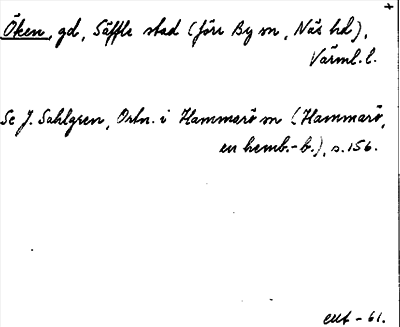 +
Öken, gd, Säffle stad (förr By sn, Näs hd),
Värml. l.
Se J. Sahlgren, Ortn. i Hammarö sn (Hammarö,
en hemb.-b.), s. 156.
-61.